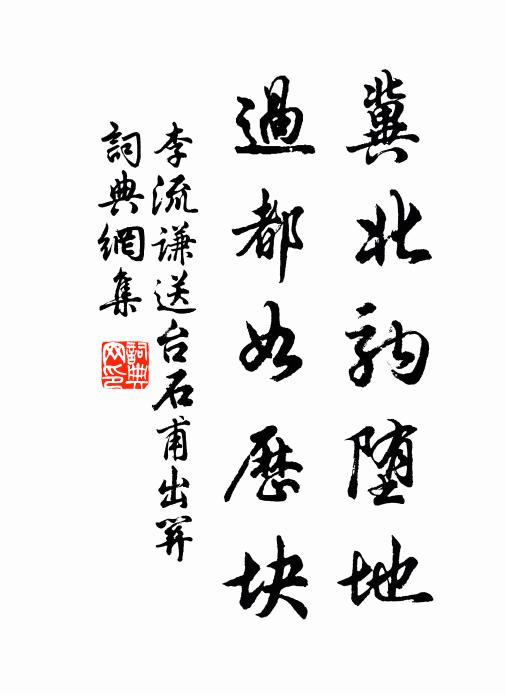 冀北駒堕地
過都如歷块
李流謙送台石甫出關
詞典網集
詞典网印